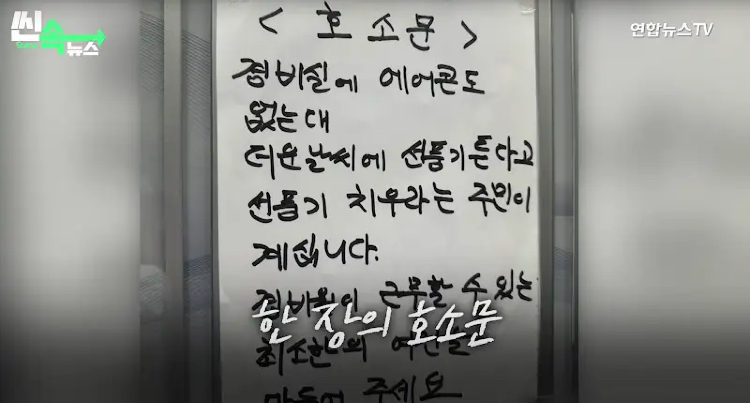 씬속뉴스
연합뉴스TV
< 호 소 문 >
경비실에 에어콘도
없는대
더운날씨에 선풍기튼다고
선풍기 치우라는 주민이
계십니다.
경비원이 근무할 수 있는
한 장의 호소문
최소한의 여건을
만들어 주세요